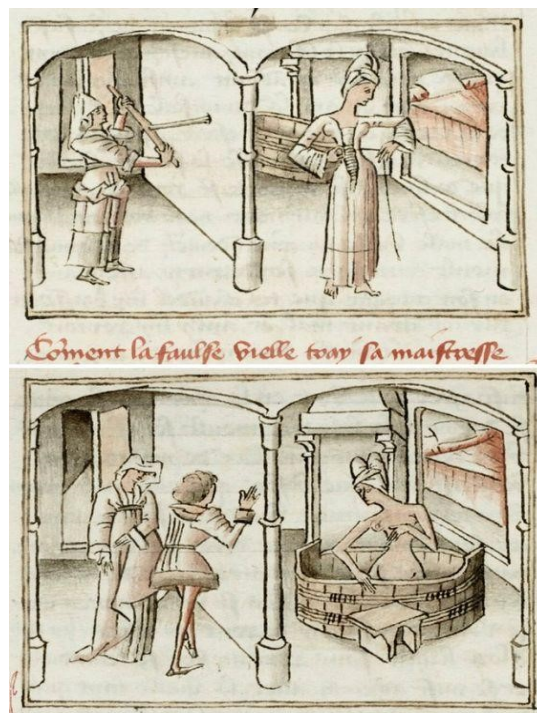 Cõment la faulse vielle tray sa maistresse